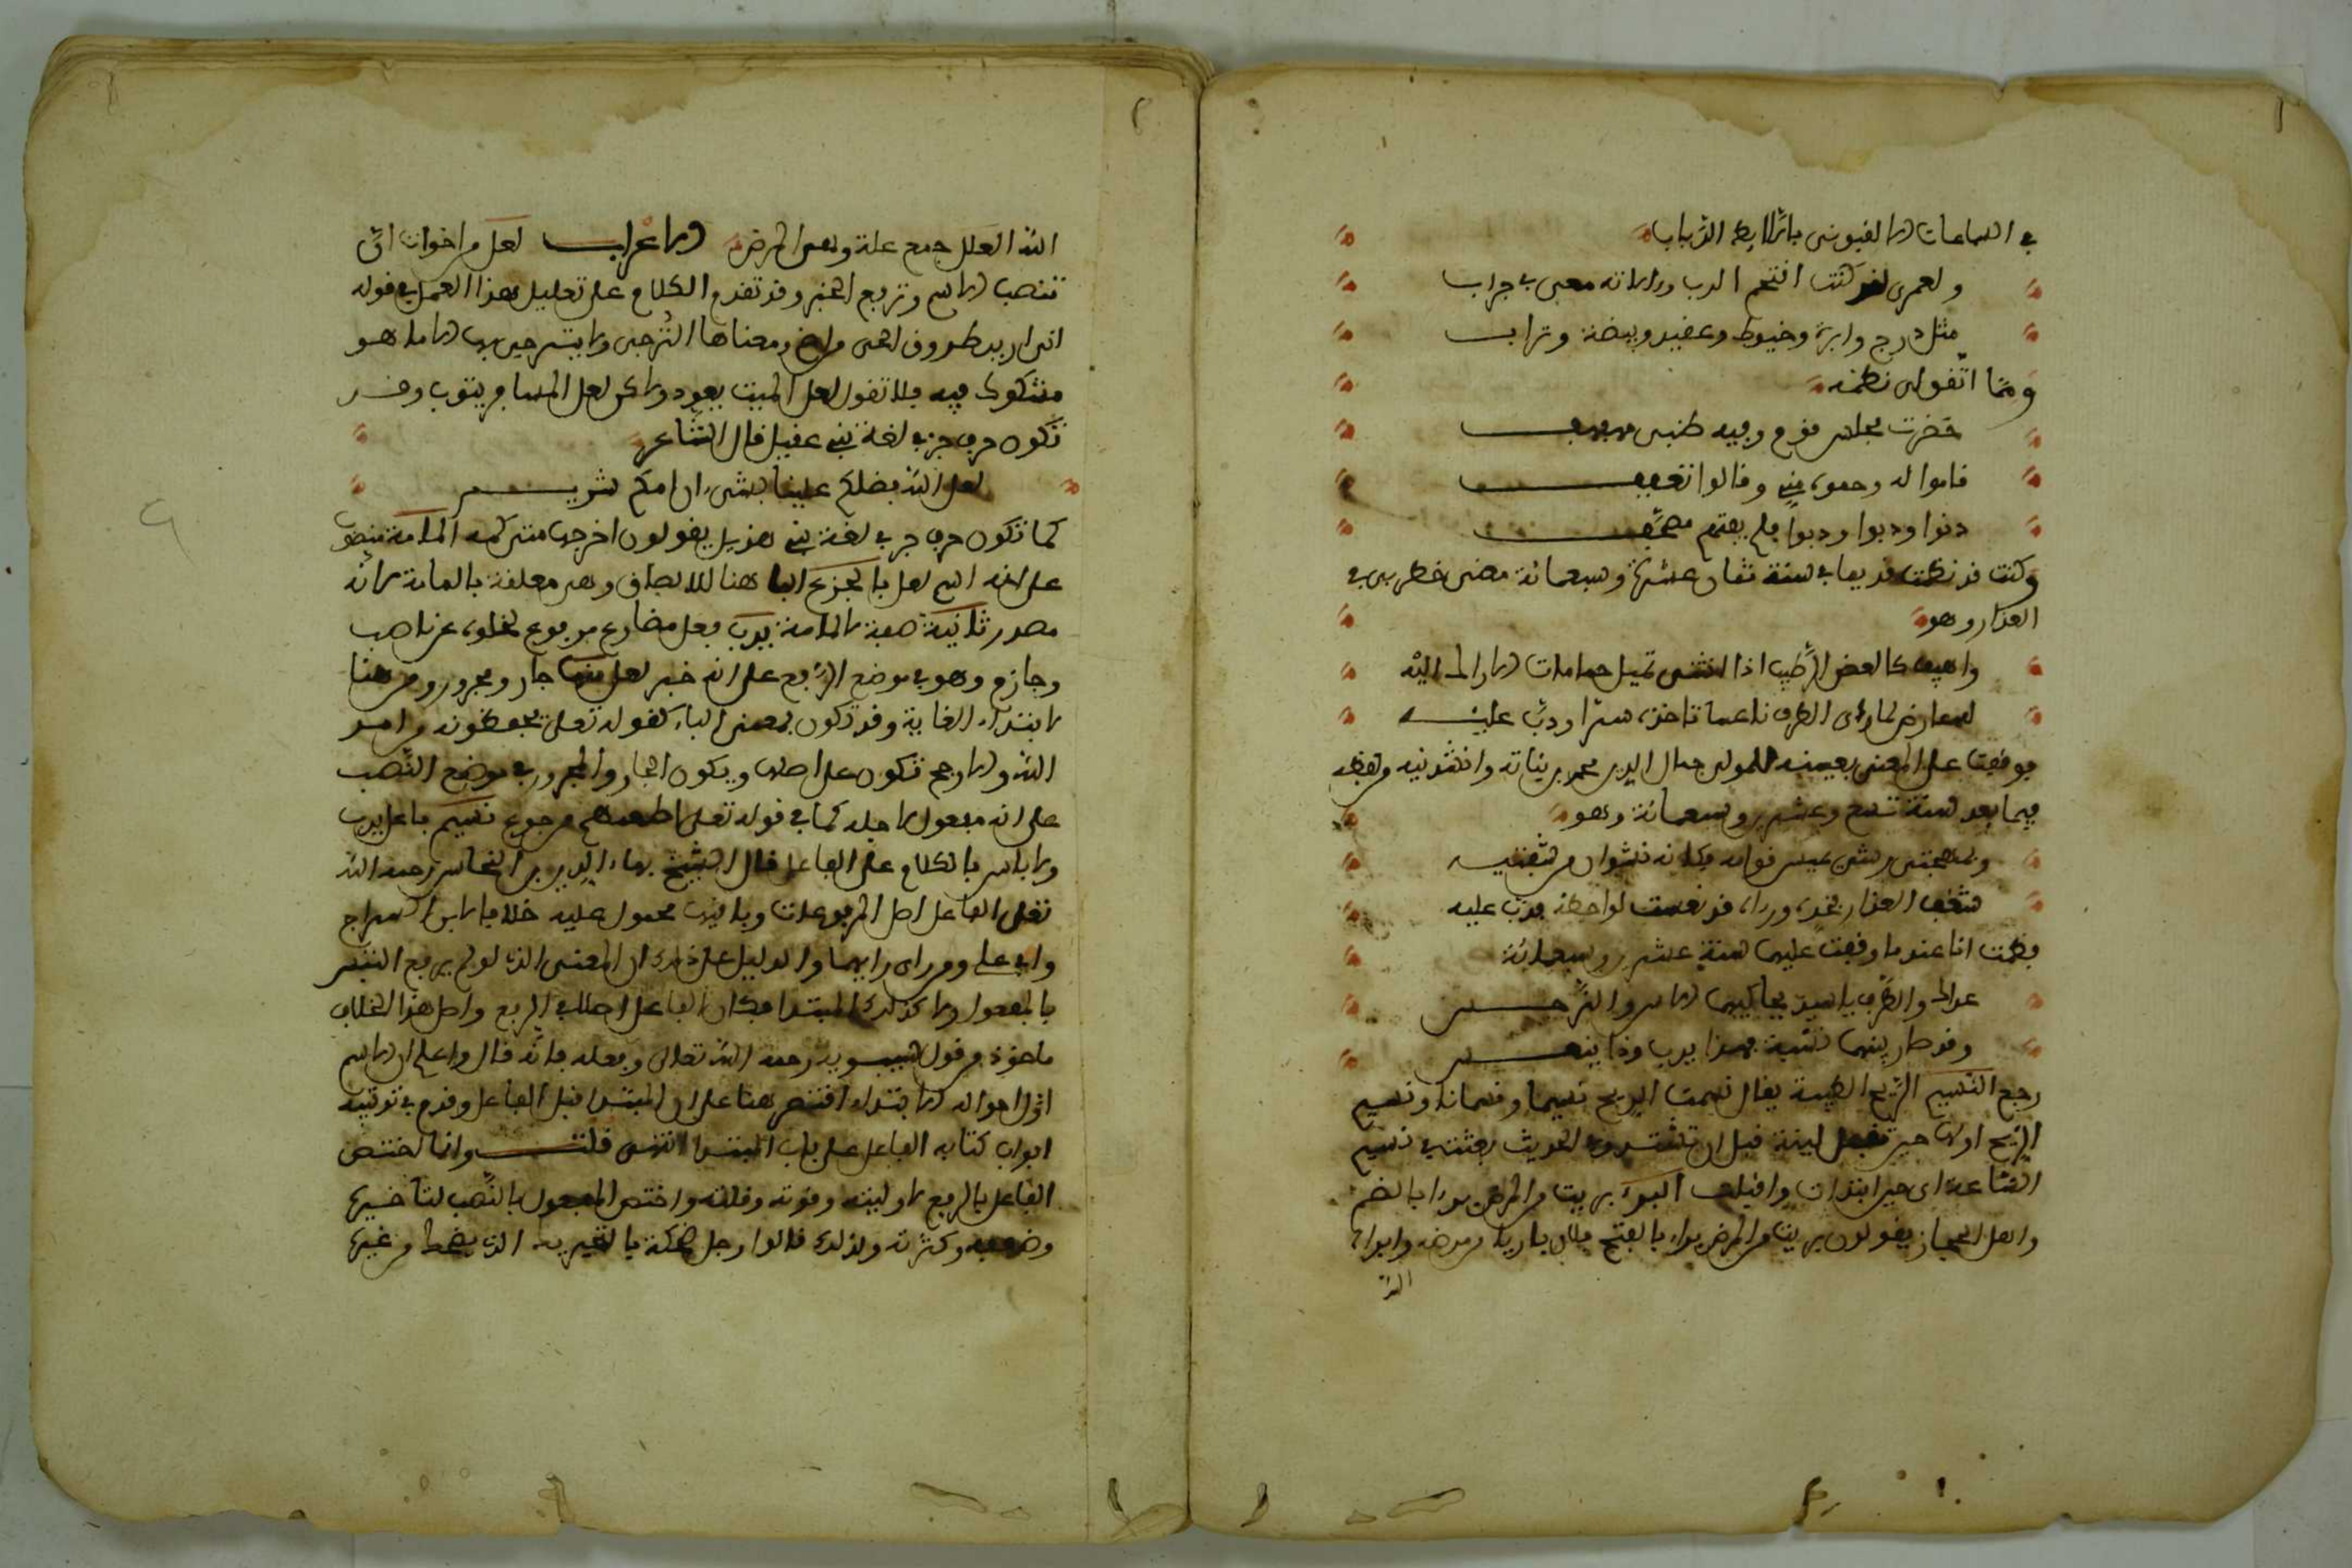 في السماعات الافيوني باكلا بط الذباب
ولعمري لقد كنت افتحم الدب وءالاته معي في جراب
مثل درج وابرة وخيوط وعفيد وبيضة وتراب
ومما اتفق لي نظمه
حضرت مجلس قوم وفيه ظبي
قاموا له وجفوني وقالوا
دنوا ودبوا ودبوا فلم يفتهم مصحف
وكنت قد نظمت قديما في سنة ثمان عشرة وسبعمائة معنى خطر لي في
العذار وهو
واهيف كالغصن الرطيب اذا انثنى تميل حمامات الاراك اليه
لعارضه لما رأى الطرف ناعسا تاخذه سترا ودب عليه
فوقفت على المعنى بعينه للمولى جمال الدين محمد بن نباته وانشدنيه من لفظه
فيما بعد سنة تسع وعشرين وسبعمائة وهو
وبمهجتي رشأ يميس قوامه فكانه نشوان من شفتيه
شغف العذار بخده ورءاه قد نعست لواحظه فدب عليه
فقلت انا عندما وقفت عليهما سنة عشرين وسبعمائة
عذارك والطرف يا سيدي يحاكيهما الاس والنرجس
وقد صار بينهما نسبة فهذا يدب وذا ينعس
رجع النسيم الريح الطيبة يقال نسمت الريح نسيما ونسمانا ونسيم
الريح اولها حين تقبل لينة قبل ان تشتد وفي الحديث بعثت في نسيم
الساعة اي حين ابتدات واقبلت البرء بريت من المرض برءا بالضم
واهل الحجاز يقولون بريت من المرض برءا بالفتح فلان بارئ من مرضه وابراه
الله
الله العلل جمع علة وهي المرض الاعراب لعل من اخوات ان
تنصب الاسم وترفع الخبر وقد تقدم الكلام على تعليل هذا العمل في قوله
اني اريد طروق الحي من اضم ومعناها الترجي ولا يترجى بها الا ما هو
مشكوك فيه فلا تقول لعل الميت يعود ولاكن لعل المسافر يئوب وقد
تكون حرف جر في لغة بني عقيل قال الشاعر
لعل الله فضلكم علينا بشيء ان امكم شريم
كما تكون حرف جر في لغة بني هذيل يقولون اخرجها متى كمه المامة منصوب
على انه اسم لعل بالجزع البا هنا للالصاق وهي معلقة بالمامة لانه
مصدر ثانية صفة لالمامة يدب فعل مضارع مرفوع لخلوه عن ناصب
وجازم وهو في موضع الرفع على انه خبر لعل منها جار ومجرور ومن هنا
لابتداء الغاية وقد تكون بمعنى الباء كقوله تعلى يحفظونه من امر
الله والارجح تكون على اصلها ويكون الجار والمجرور في موضع النصب
على انه مفعول لاجله كما في قوله تعلى اطعمهم من جوع نسيم فاعل يدب
ولا باس بالكلام على الفاعل قال الشيخ بهاء الدين بن النحاس رحمه الله
تعلى الفاعل اصل المرفوعات وباقيها محمول عليه خلافا لابن السراج
وابي علي ومن راى رايهما والدليل على ذلك ان المعنى الذي لو لم يرفع التبس
بالمفعول ولا كذلك المبتدا فكان الفاعل اصلا في الرفع واصل هذا الخلاف
ماخوذ من قول سيبويه رحمه الله تعالى وفعله فانه قال واعلم ان الاسم
اول احواله الابتداء فنص هنا على ان المبتدا قبل الفاعل وقدم في ترتيب
ابواب كتابه الفاعل على باب المبتدا انتهى قلت وانما اختص
الفاعل بالرفع لاوليته وقوته وقلته واختص المفعول بالنصب لتاخيره
وضعفه وكثرته ولذلك قالوا رجل ضحكة بالتحريك الذي يضحك من غيره